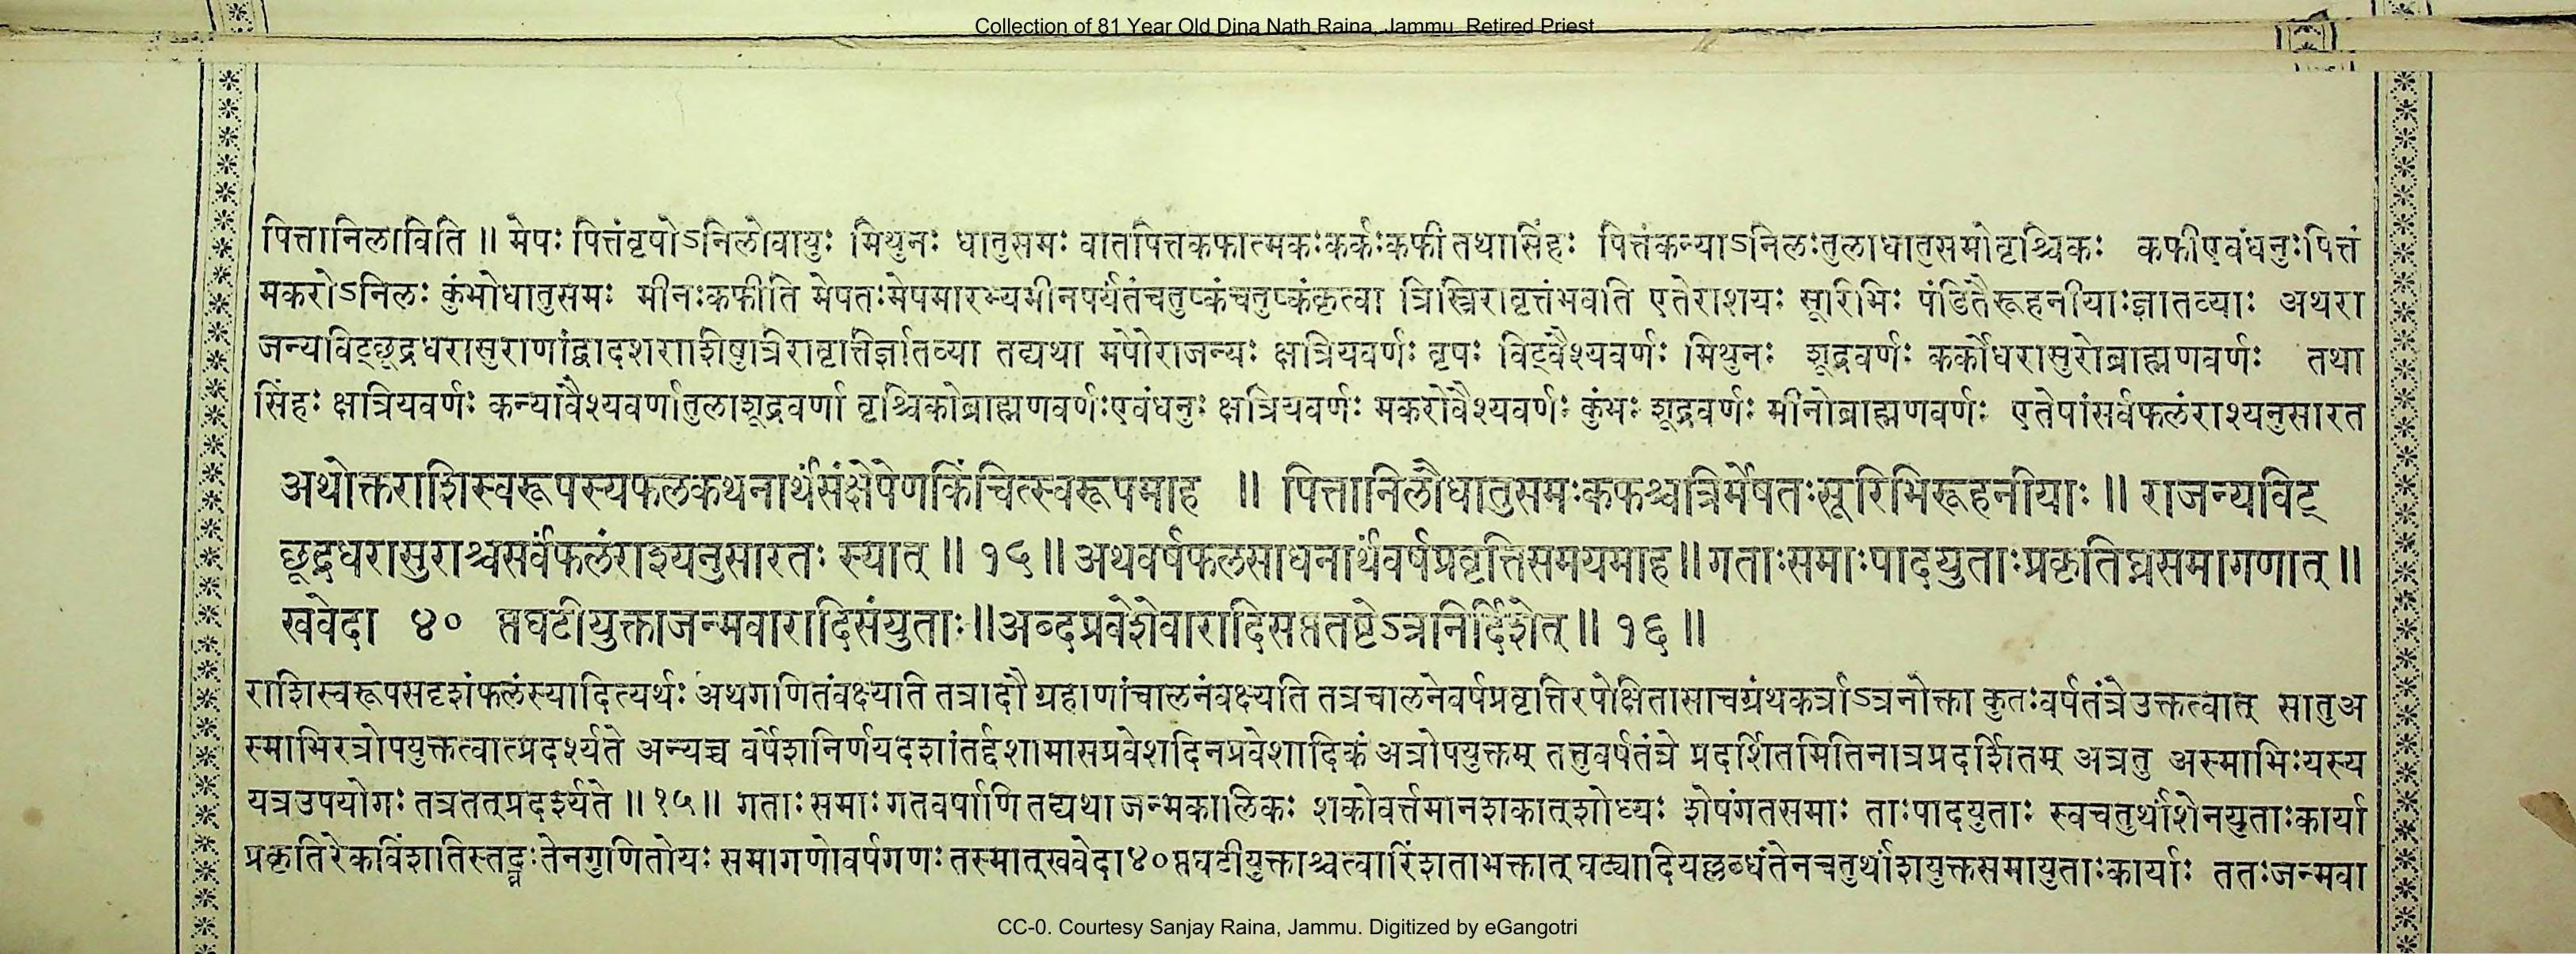 Collection of 81 Year Old Dina Nath Raina, Jammu. Retired Priest
पित्तानिलाविति ॥ मेषः पित्तंवृषोऽनिलोवायुः मिथुनः धातुसमः वातपित्तकफात्मकःकर्कःकफी तथासिंहः पित्तंकन्याऽनिलःतुलाधातुसमोवृश्चिकः कफीएवंधनुःपित्तं
मकरोऽनिलः कुंभोधातुसमः मीनःकफीति मेषतःमेषमारभ्यमीनपर्यंतंचतुष्कंचतुष्कंकृत्वा त्रिस्त्रिरावृत्तंभवति एतेराशयः सूरिभिः पंडितैरूहनीयाःज्ञातव्याः अथरा
जन्यविट्छूद्रधरासुराणांद्वादशराशिषुत्रिरावृत्तिर्ज्ञातव्या तद्यथा मेषोराजन्यः क्षत्रियवर्णः वृषः विट्वैश्यवर्णः मिथुनः शूद्रवर्णः कर्कोधरासुरोब्राह्मणवर्णः तथा
सिंहः क्षत्रियवर्णः कन्यावैश्यवर्णातुलाशूद्रवर्णा वृश्चिकोब्राह्मणवर्णःएवंधनुः क्षत्रियवर्णः मकरोवैश्यवर्णः कुंभः शूद्रवर्णः मीनोब्राह्मणवर्णः एतेषांसर्वफलंराश्यनुसारत
अथोक्तराशिस्वरूपस्यफलकथनार्थंसंक्षेपेणकिंचित्स्वरूपमाह ॥ पित्तानिलौधातुसमःकफश्चत्रिर्मेषतःसूरिभिरूहनीयाः ॥ राजन्यविट्
छूद्रधरासुराश्चसर्वंफलंराश्यनुसारतः स्यात् ॥ १५ ॥ अथवर्षफलसाधनार्थंवर्षप्रवृत्तिसमयमाह॥ गताःसमाःपादयुताःप्रकृतिघ्नसमागणात् ॥
खवेदा ४० प्तघटीयुक्ताजन्मवारादिसंयुताः॥अब्दप्रवेशेवारादिसप्ततष्टेऽत्रनिर्दिशेत् ॥ १६ ॥
राशिस्वरूपसदृशंफलंस्यादित्यर्थः अथगणितंवक्ष्याति तत्रादौ ग्रहाणांचालनंवक्ष्यति तत्रचालनेवर्षप्रवृत्तिरपेक्षितासाचग्रंथकर्त्राऽत्रनोक्ता कुतःवर्षतंत्रेउक्तत्वात् सातुअ
स्माभिरत्रोपयुक्तत्वात्प्रदर्श्यते अन्यच्च वर्षेशनिर्णयदशांतर्द्दशामासप्रवेशदिनप्रवेशादिकं अत्रोपयुक्तम् तत्तुवर्षतंत्रे प्रदर्शितमितिनात्रप्रदर्शितम् अत्रतु अस्माभिःयस्य
यत्रउपयोगः तत्रतत्प्रदर्श्यते ॥ १५ ॥ गताः समाः गतवर्षाणि तद्यथा जन्मकालिकः शकोवर्त्तमानशकात्शोध्यः शेषंगतसमाः ताःपादयुताः स्वचतुर्थांशेनयुताःकार्या
प्रकृतिरेकविंशतिस्तद्घ्नःतेनगुणितोयः समागणोवर्षगणः तस्मात्खवेदा४०प्तघटीयुक्ताश्चत्वारिंशताभक्तात् घट्यादियल्लब्धंतेनचतुर्थांशयुक्तसमायुताःकार्याः ततःजन्मवा
CC-0. Courtesy Sanjay Raina, Jammu. Digitized by eGangotri